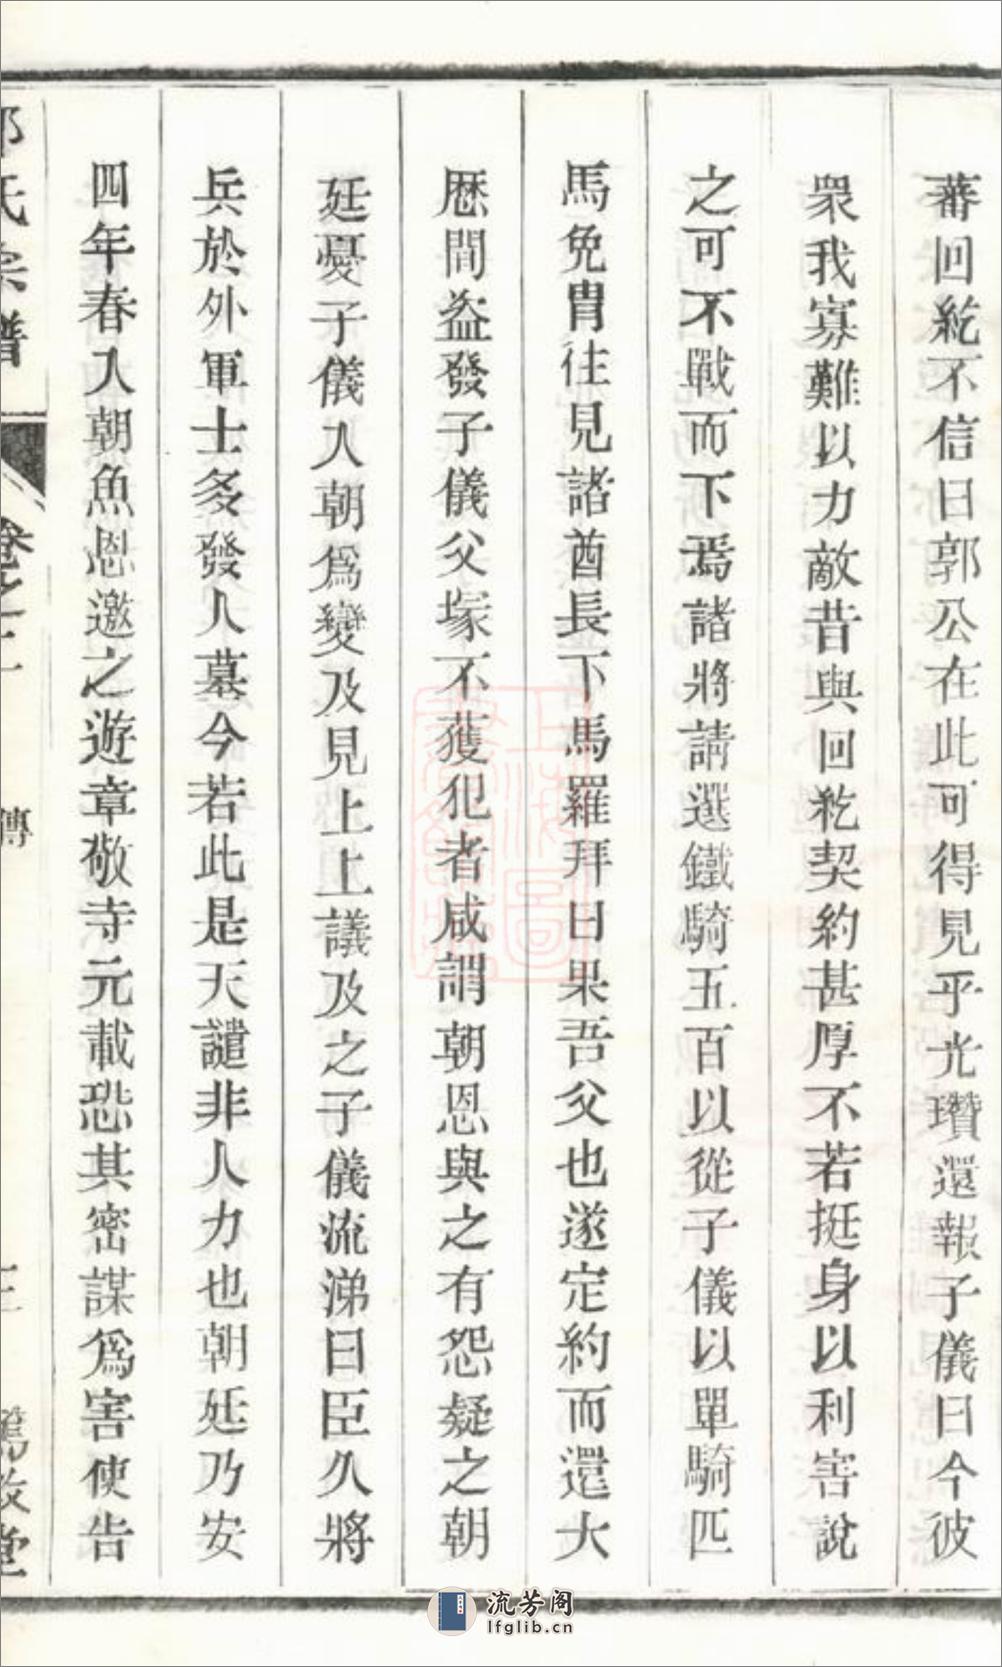 蕃回紇不信曰郭公在此可得見乎光瓚還報子儀曰今彼
衆我寡難以力敵昔與回紇契約甚厚不若挺身以利害說
之可不戰而下焉諸將請選鐵騎五百以從子儀以單騎匹
馬免胄往見諸酋長下馬羅拜曰果吾父也遂定約而還大
厯間盗發子儀父塚不獲犯者咸謂朝恩與之有怨疑之朝
廷憂子儀入朝爲變及見上上議及之子儀流涕曰臣久將
兵於外軍士多發人墓今若此是天譴非人力也朝廷乃安
四年春入朝魚恩邀之遊章敬寺元載恐其密謀爲害使告
氏宗譜
卷之二
傳
三
堂
上海圖
書館藏
流芳阁
lfglib.cn